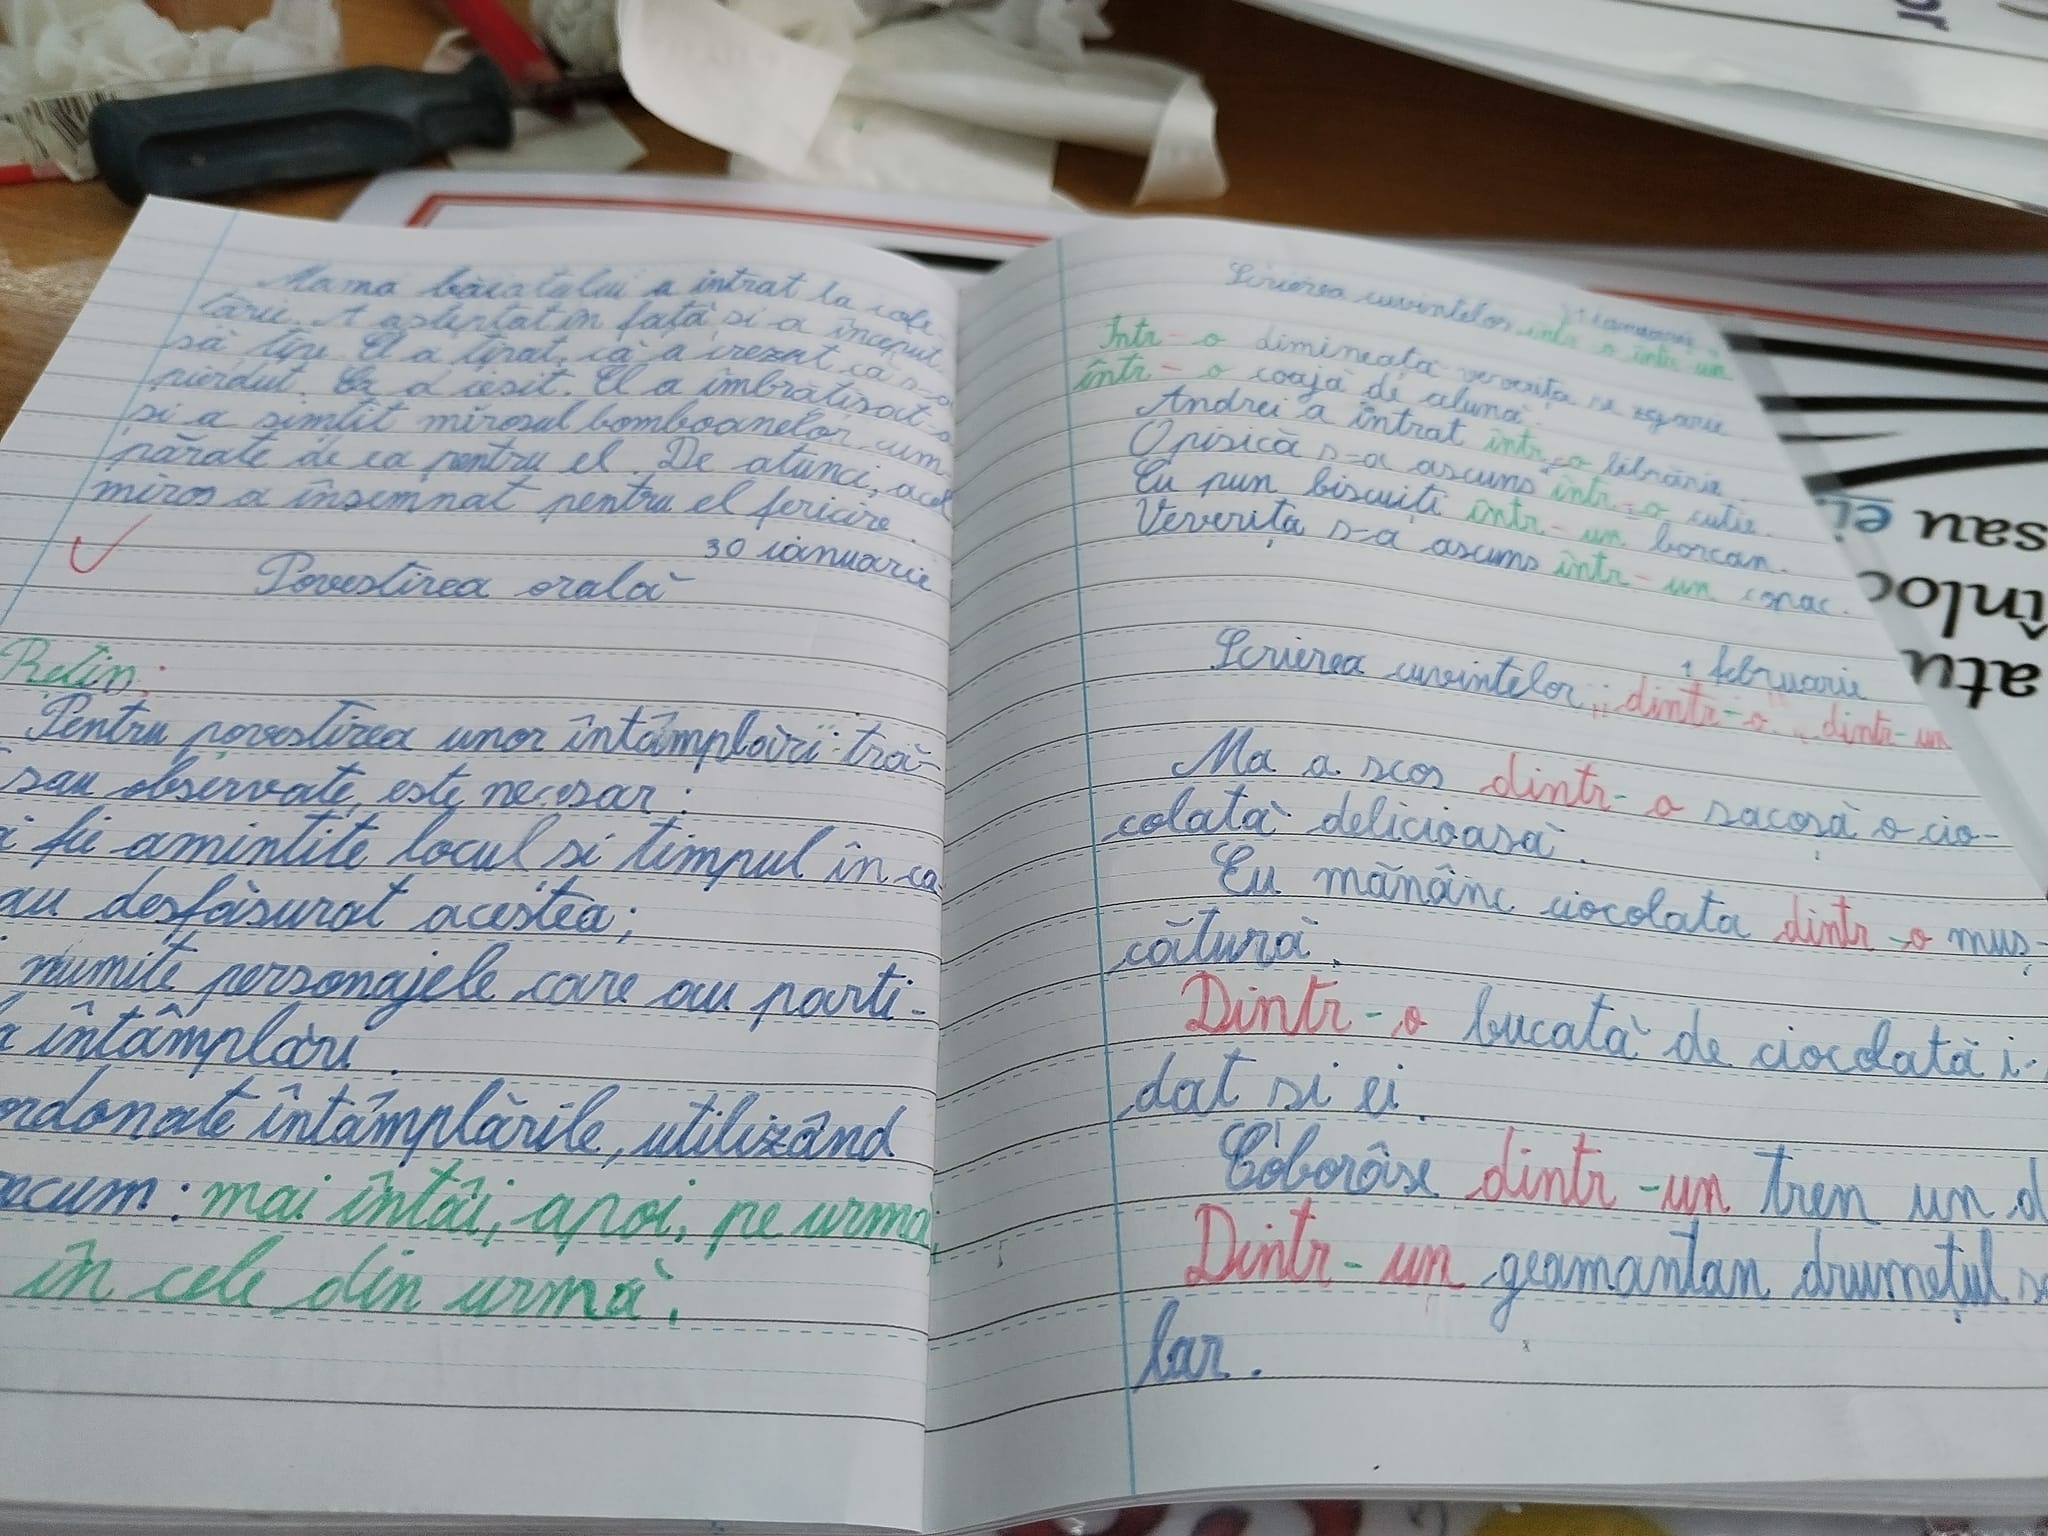 Mama băiatului a intrat la cofe
tărie. A așteptat în față și a început
să țipe. El a țipat, că a crezut că s-a
pierdut. Ea a iesit. El a îmbrățisat-o
si a simtit mirosul bomboanelor cum
părate de ea pentru el. De atunci, acel
miros a însemnat pentru el fericire.
30 ianuarie
Povestirea orală
Retin:
Pentru povestirea unor întâmplări tră-
sau observate, este necesar:
fie amintite locul si timpul în ca
au desfăsurat acestea;
numite personajele care au parti-
întâmplări.
ordonate întâmplările, utilizând
recum: mai întâi, apoi, pe urmă,
în cele din urmă.
31 ianuarie
Scrierea cuvintelor într-o într-un
Într-o dimineață veverița se zgârie
într-o coajă de alună.
Andrei a intrat într-o librărie.
O pisică s-a ascuns într-o cutie.
Eu pun biscuiți într-un borcan.
Veverița s-a ascuns într-un copac.
1 februarie
Scrierea cuvintelor "dintr-o" "dintr-un
Ma a scos dintr-o sacoșă o cio-
colată delicioasă.
Eu mănânc ciocolata dintr-o muș-
cătură.
Dintr-o bucată de ciocolată i-
dat si ei.
Coborâse dintr-un tren un d
Dintr-un geamantan drumețul s
lar.
sau ei
înloc
atu
or